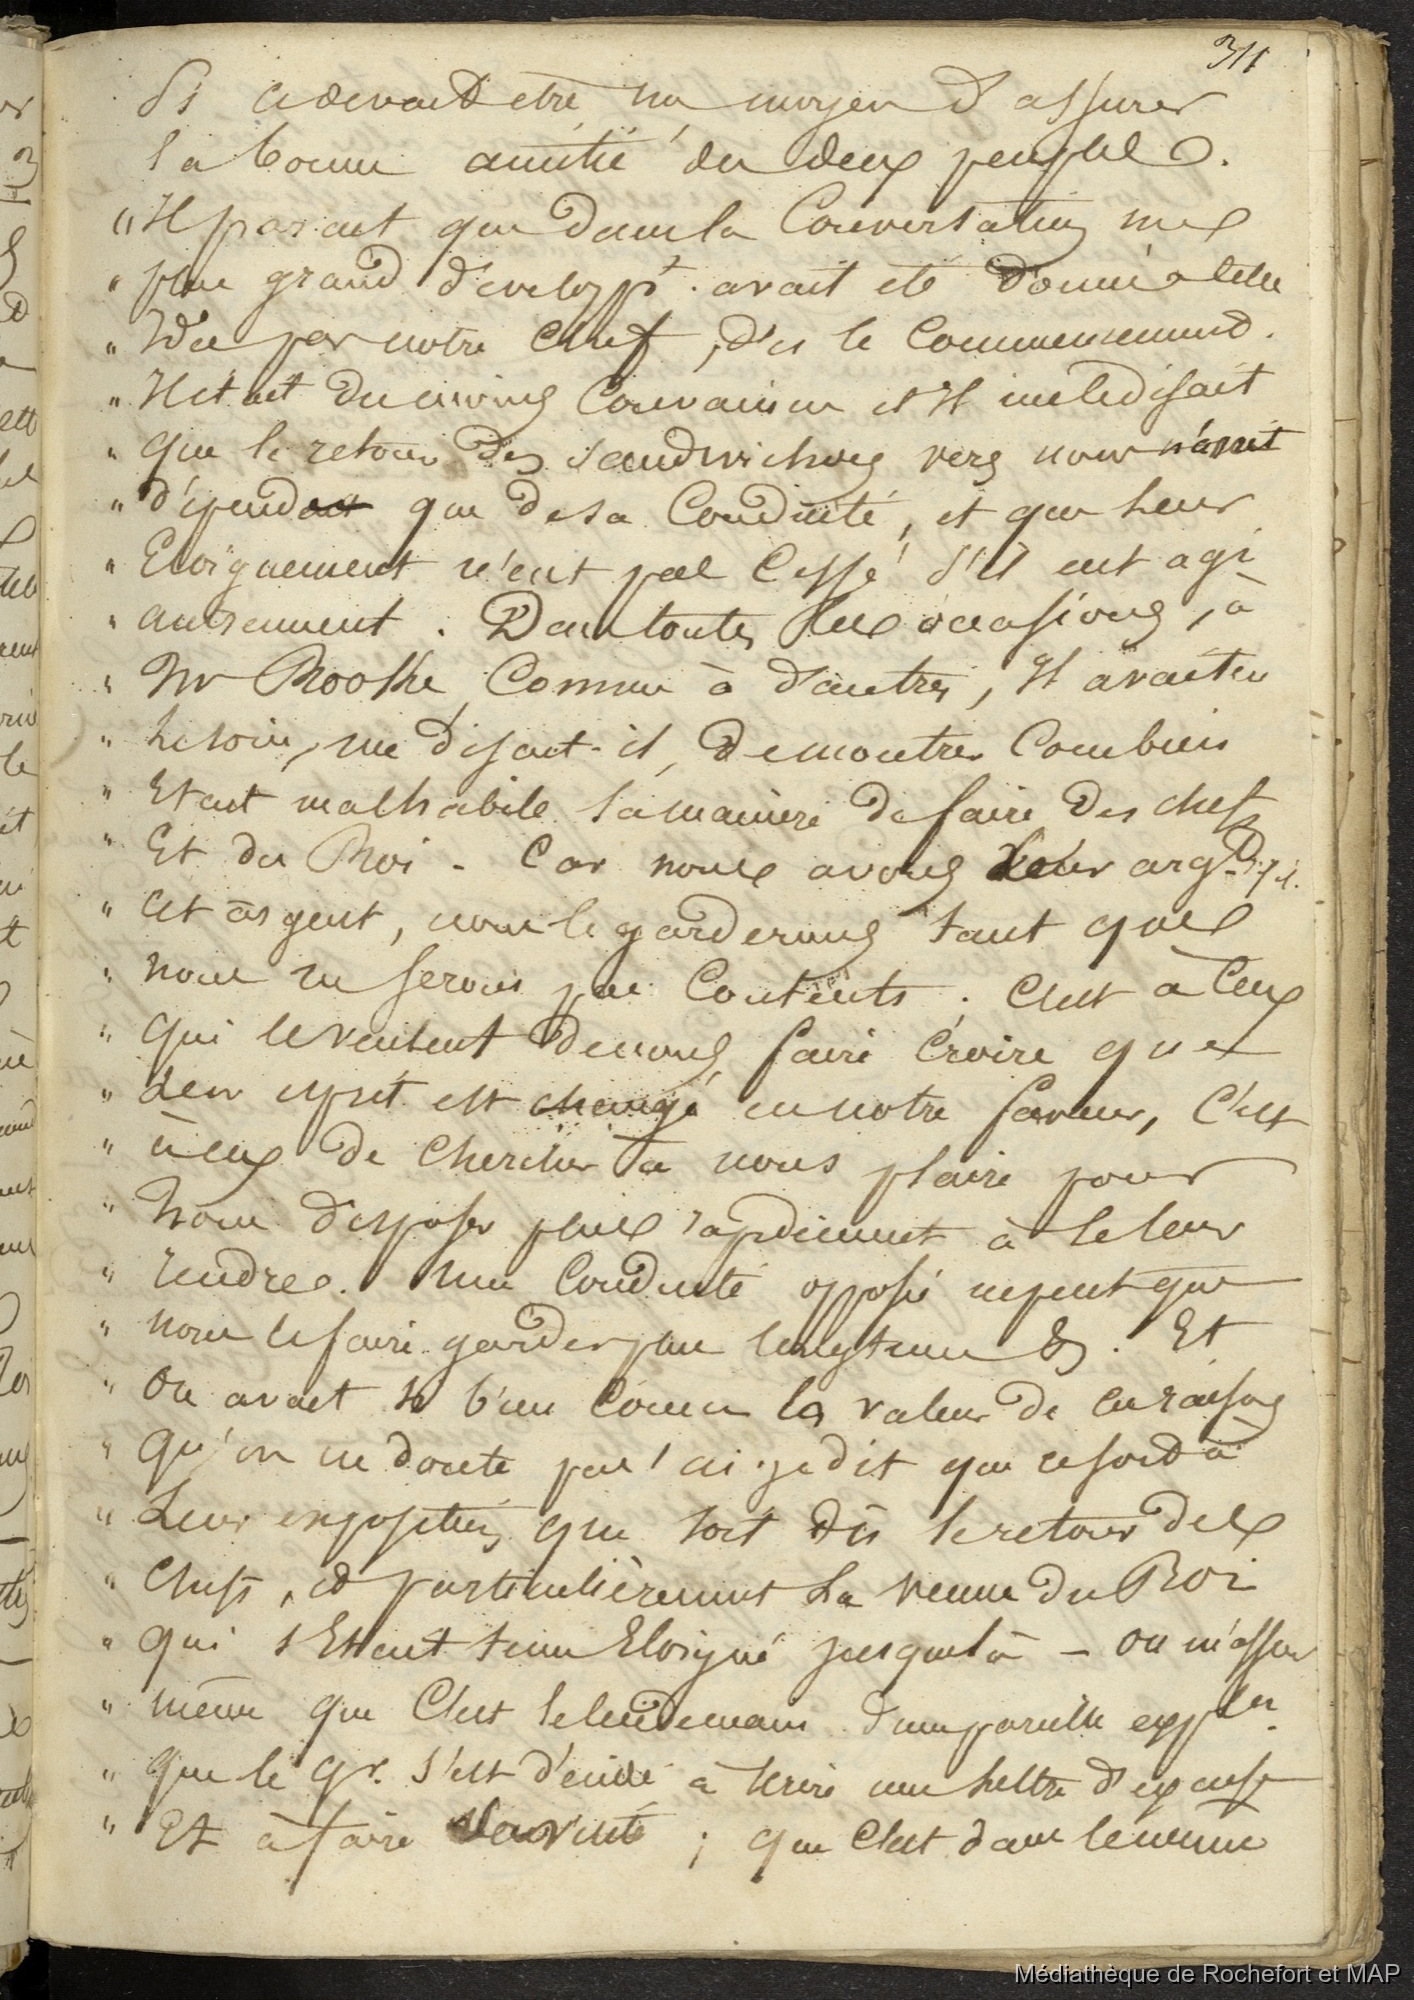 311
Si ce devait etre un moyen d'assurer
la bonne amitié des deux peuples.
"Il parait que dans la Conversation un
" plus grand dévelopt. avait été donné a telle
" Idée par notre Chef, dès le Commencement.
" Il était du moins Convaincu et Il me le disait
" que le retour des Sandwichiens vers nous n'avait
" dépendu que de sa Conduite, et que leur
" Eloignement n'eut pas Cessé s'il eut agi
" autrement. Dans toutes les occasions, à
" Mr Rooke Comme à d'autres, Il avait eu
" le soin, me disait-il, de montrer Combien
" Etait malhabile la manière de faire des chefs
" Et du Roi - Car nous avons leur argt.
" Cet argent, nous le garderons tant que
" nous ne serons pas Contents. C'est à Ceux
" qui le veulent de nous faire Croire que
" leur esprit est changé en notre faveur, C'est
" à eux de Chercher à nous plaire pour
" nous disposer plus rapidement à le leur
" rendre. Une Conduite opposée ne peut que
" nous le faire garder plus longtems &. Et
" on avait si bien Connu la valeur de ces raisons
" qu'on ne doute pas' ai-je dit que ce soit à
" Leur exposition que soit dûs le retour des
" Chefs, et particulièrement la venue du Roi
" qui s'Etait tenu Eloigné jusque là - on m'assure
" même que C'est le lendemain d'une pareille
" que le Gr. s'est décidé à écrire une lettre d'excuse
" Et à faire sa visite ; que C'est dans le même
Médiathèque de Rochefort et MAP